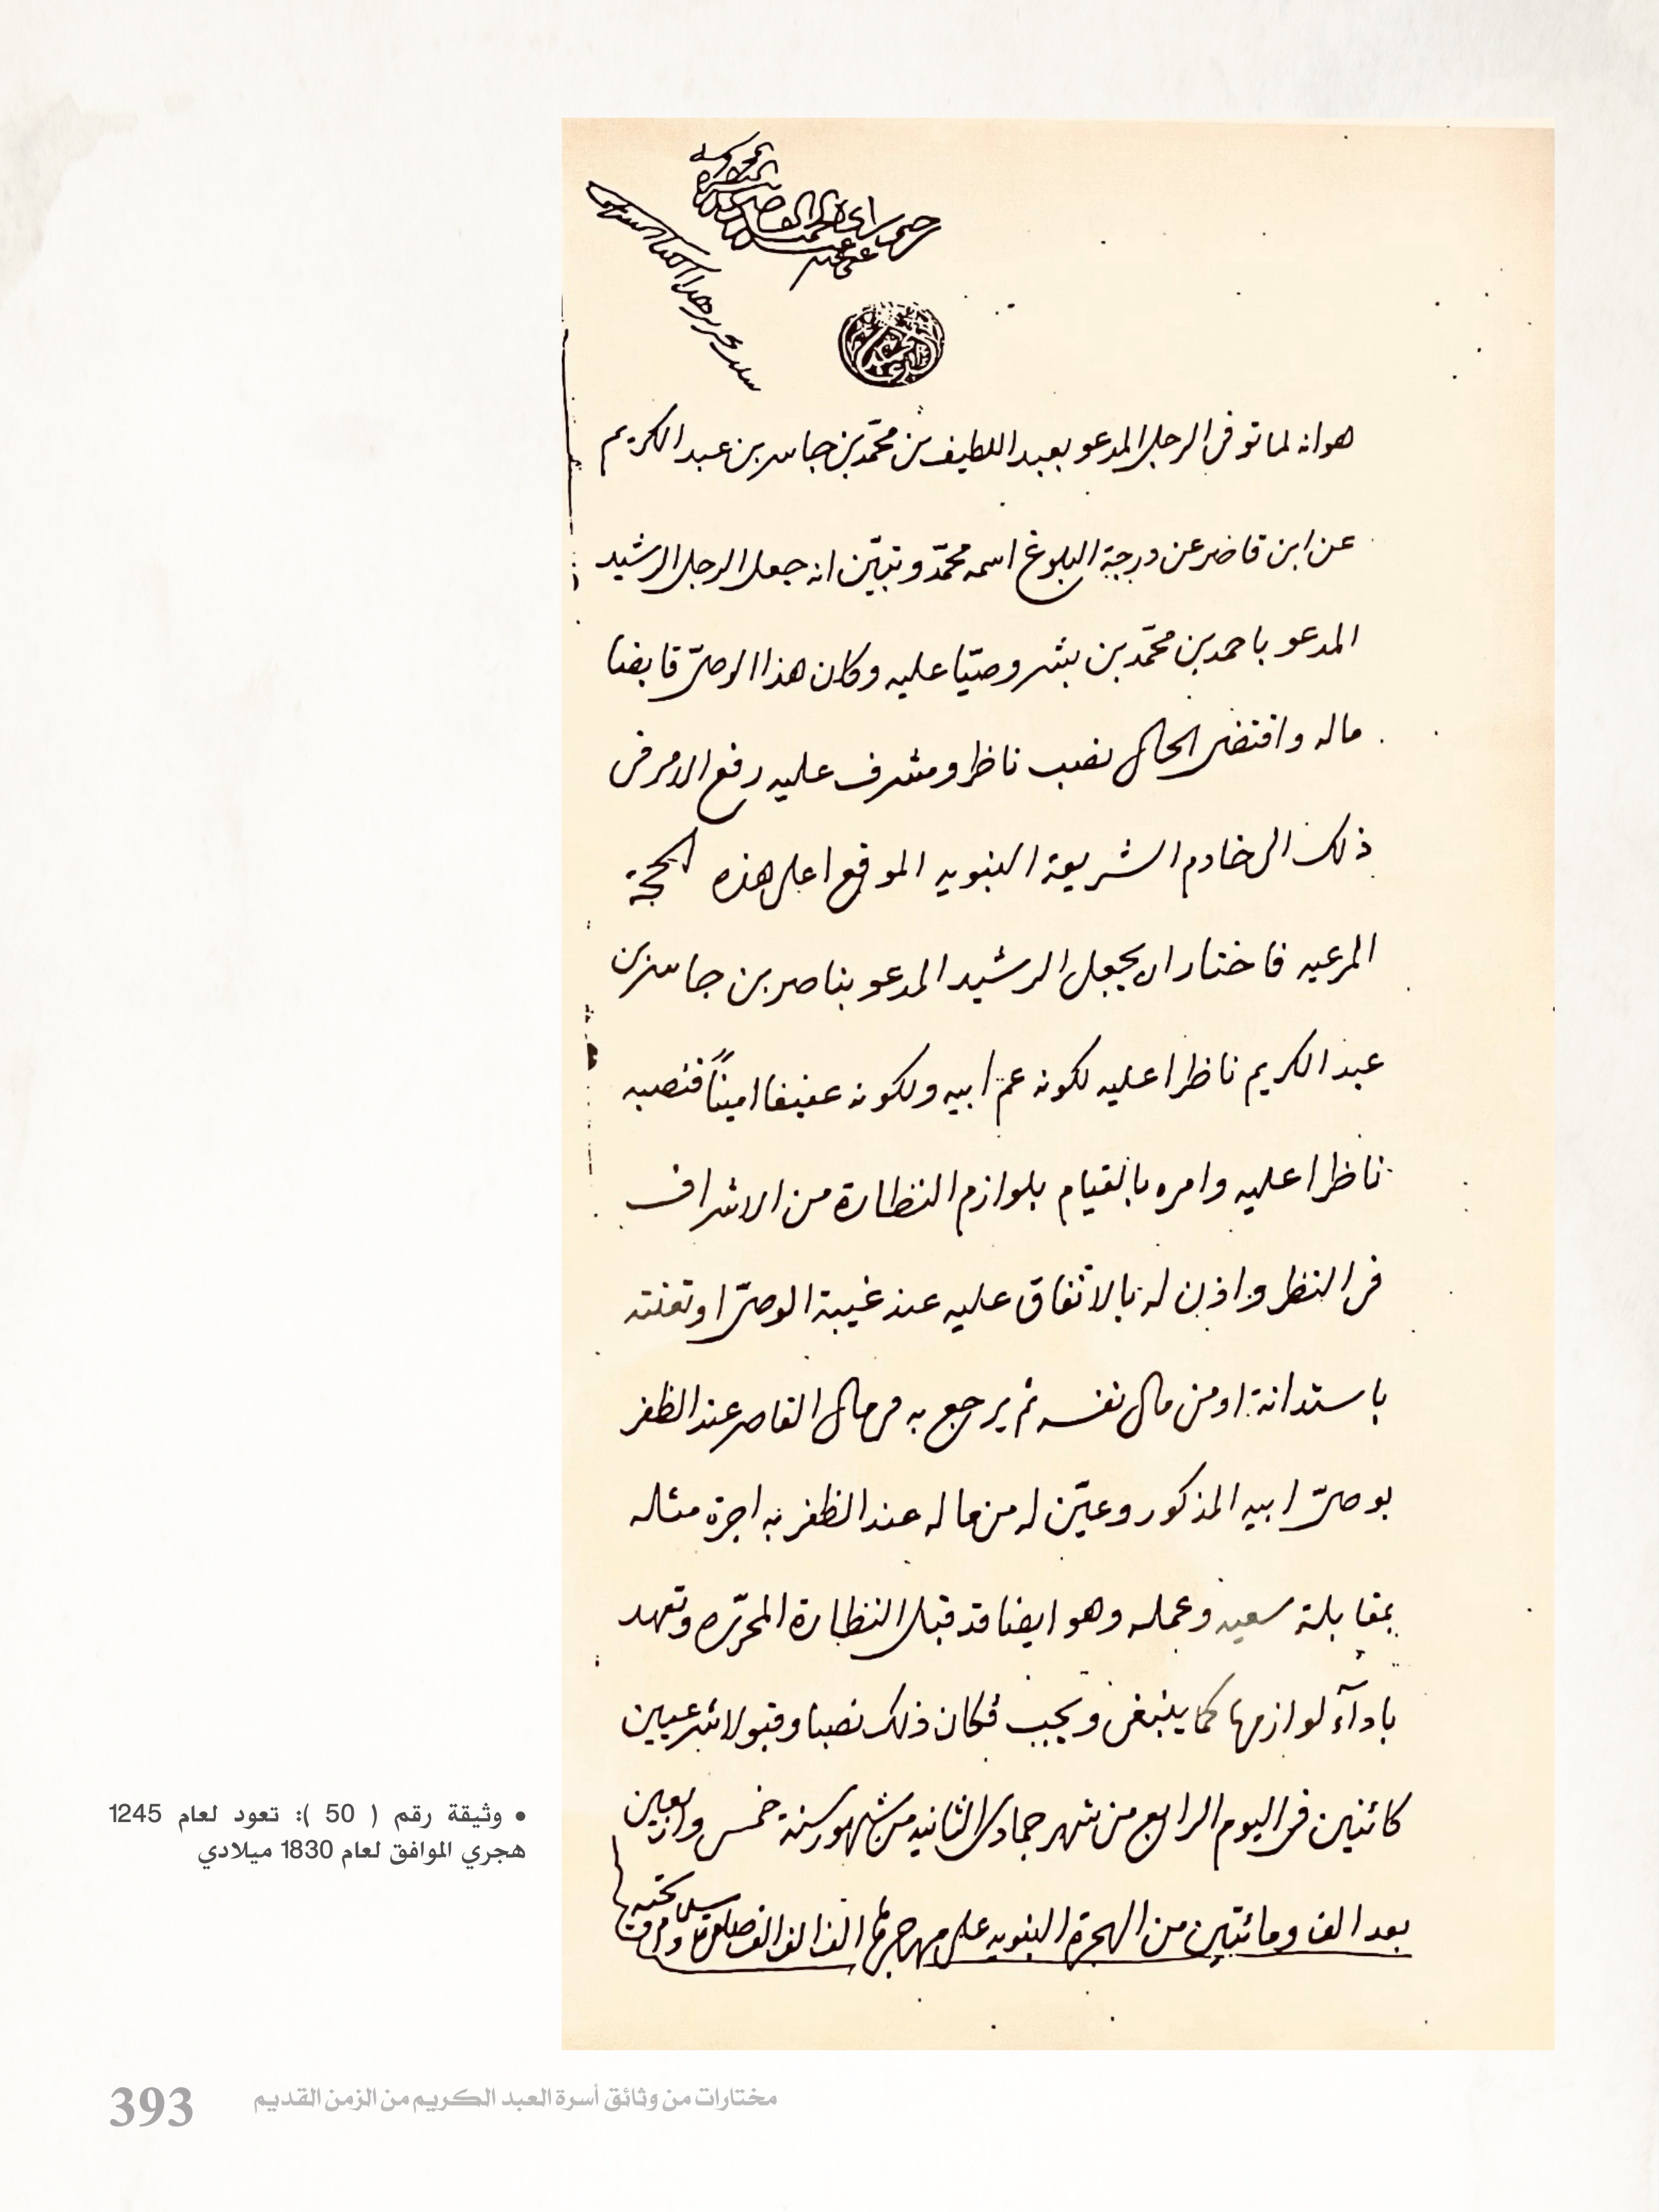 هو انه لما توفى الرجل المدعو بعبد اللطيف بن محمّد بن جاسر بن عبد الكريم
عن ابن قاصر عن درجة البلوغ اسمه محمّد وتبيّن انه جعل الرجل الرشيد
المدعو باحمد بن محمّد بن بشر وصيّا عليه وكان هذا الوصىّ قابضا
ماله واقتضى الحال نصب ناظر ومشرف عليه رفع الامر فى
ذلك الى خادم الشريعة النبويه الموقع اعلى هذه الحجّة
المرعيه فاختار ان يجعل الرشيد المدعو بناصر بن جاسر بن
عبد الكريم ناظرا عليه لكونه عمّ ابيه ولكونه عفيفا اميناً فنصبه
ناظرا عليه وامره بالقيام بلوازم النظارة من الاشراف
فى النظر واذن له بالاتفاق عليه عند غيبة الوصىّ او تعنته
باستدانة او من مال نفسه ثم يرجع به فى مال القاصر عند الظفر
بوصىّ ابيه المذكور وعيّن له من ماله عند الظفر به اجرة مثله
بمقابلة سعيه وعمله وهو ايضا قد قبل النظارة المحرّره وتعهد
باداۤء لوازمها كما ينبغى ويجب فكان ذلك نصبا وقبولا شرعيين
كائنين فى اليوم الرابع من شهر جمادى الثانيه من شهور سنة خمس واربعين
بعد الف ومائتين من الهجرة النبويه على مهاجرها الف الف
• وثيقة رقم ( 50 ): تعود لعام 1245
هجري الموافق لعام 1830 ميلادي
مختارات من وثائق أسرة العبد الكريم من الزمن القديم
393